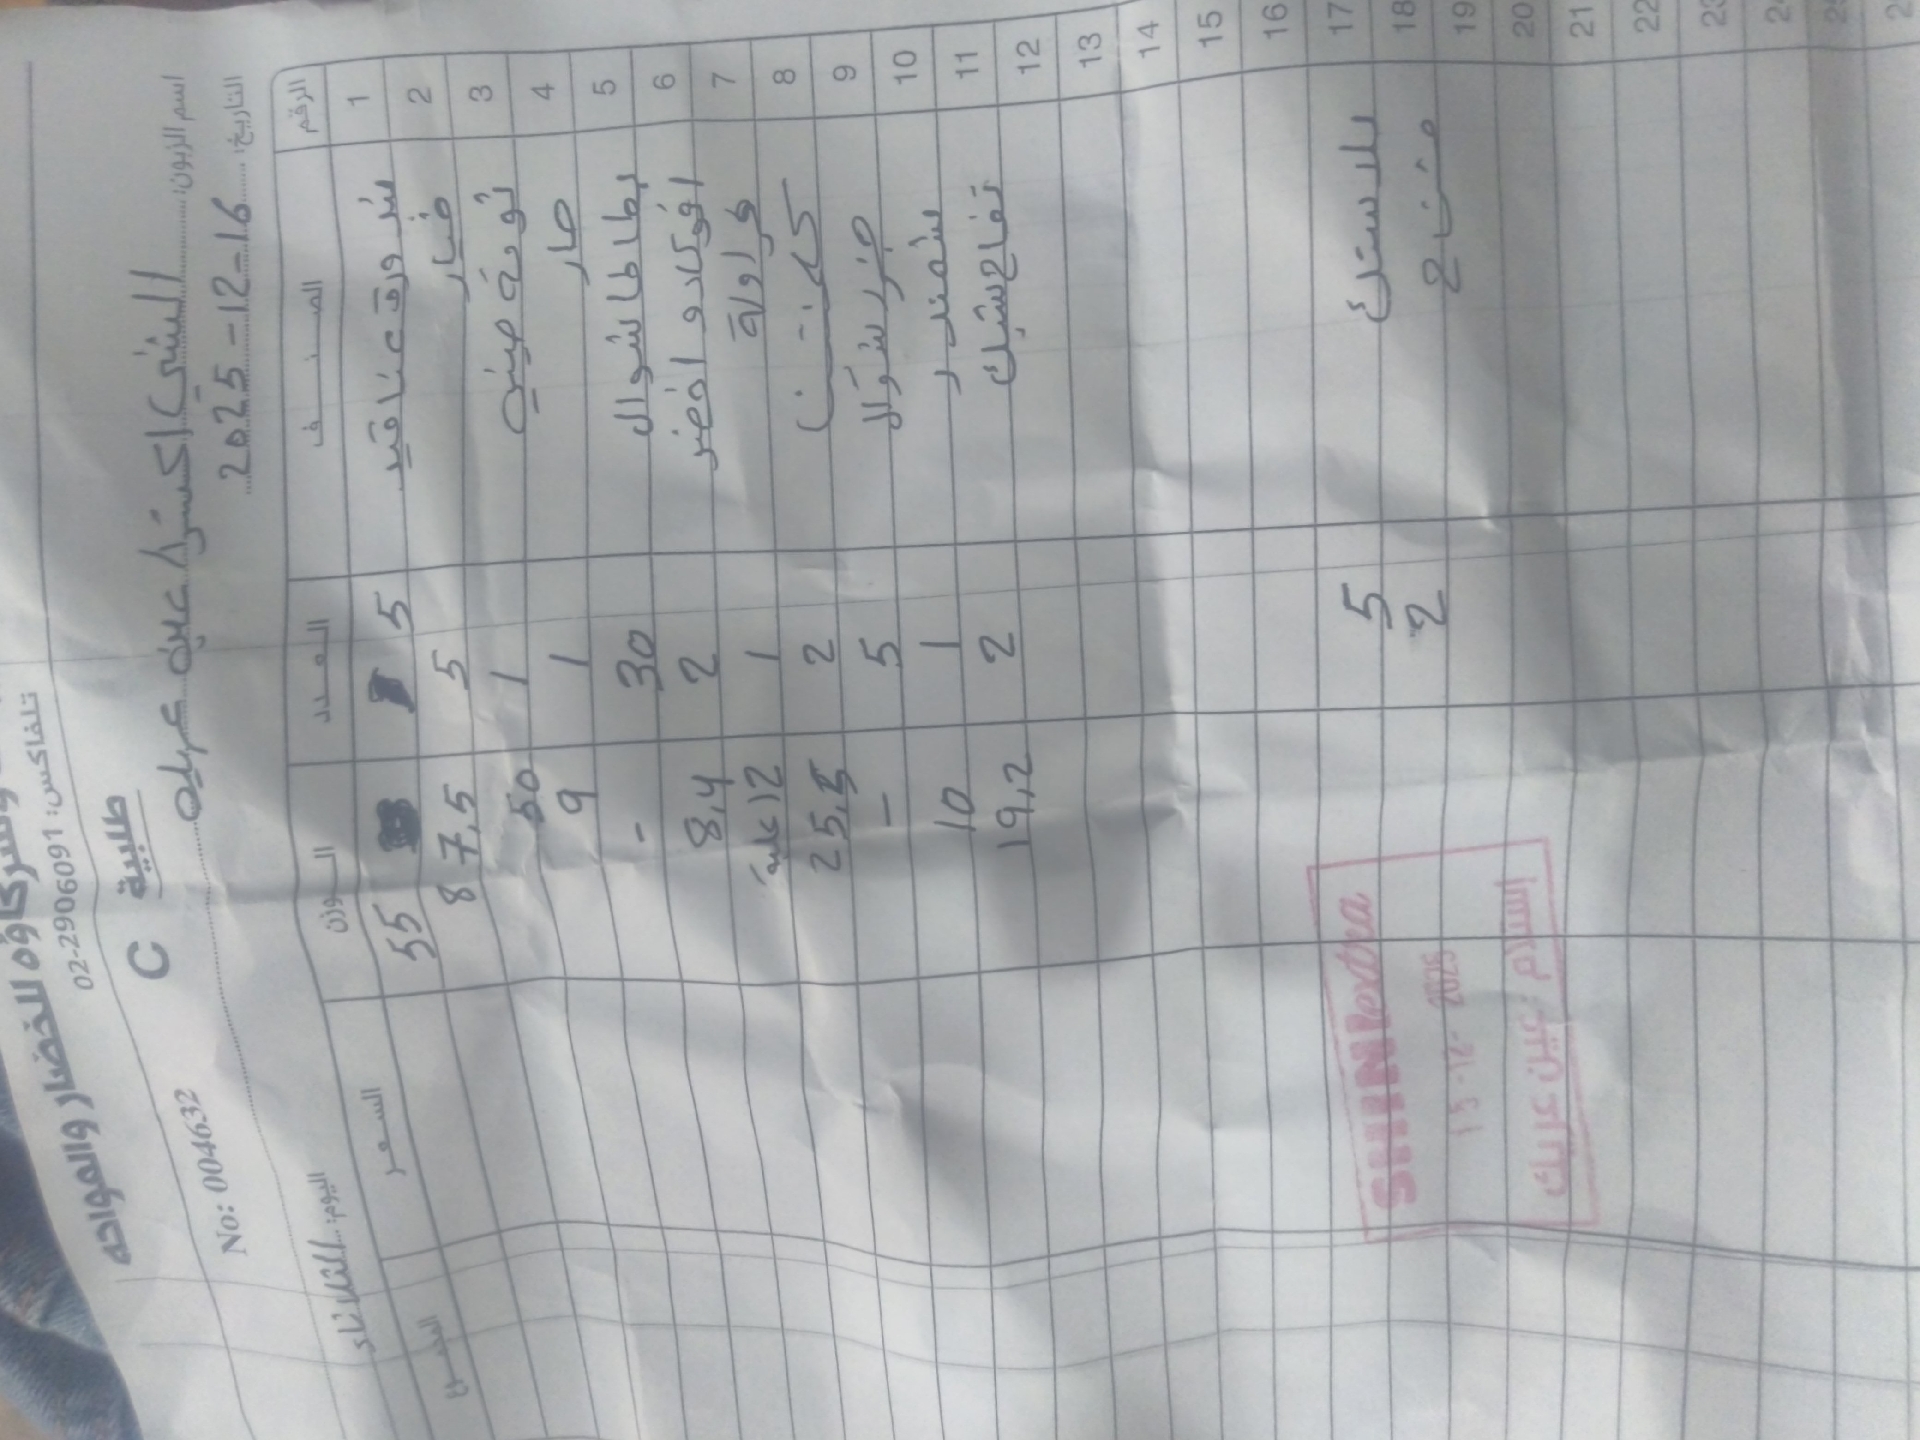 وشركاؤه للخضار والفواكه
تلفاكس: 02-2906091
C طلبية
No: 004632
اسم الزبون: الشني اكسترا عين عريك
التاريخ: 2025-12-16
اليوم: الثلاثاء
الرقم الصنف العدد الوزن السعر
1 عناقيد 5 55
2 خيار 5 87,5
3 ثومة صيني 1 50
4 حار 1 9
5 بطاطا شوال 30 -
6 افوكادو اخضر 2 8,4
7 فراولة 1 12 علبة
8 2 25,5
9 جزر شوال 5 -
10 شمندر 1 10
11 تفاح 2 19,2
12
13
14
15
16
17 بلاستيك 5
18 2
19
20
21
22
SHINI extra
2025
استلام عين عريك